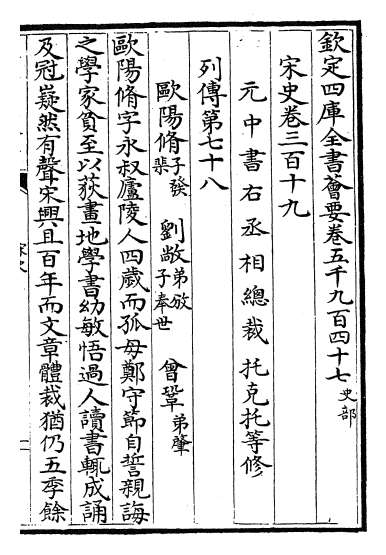 欽定四庫全書薈要卷五千九百四十七 史部
宋史卷三百十九
元中書右丞相總裁托克托等修
列傳第七十八
歐陽脩 子發 棐 劉敞 弟攽 子奉世 曾鞏 弟肇
歐陽脩字永叔廬陵人四歲而孤母鄭守節自誓親誨
之學家貧至以荻畫地學書幼敏悟過人讀書輒成誦
及冠嶷然有聲宋興且百年而文章體裁猶仍五季餘